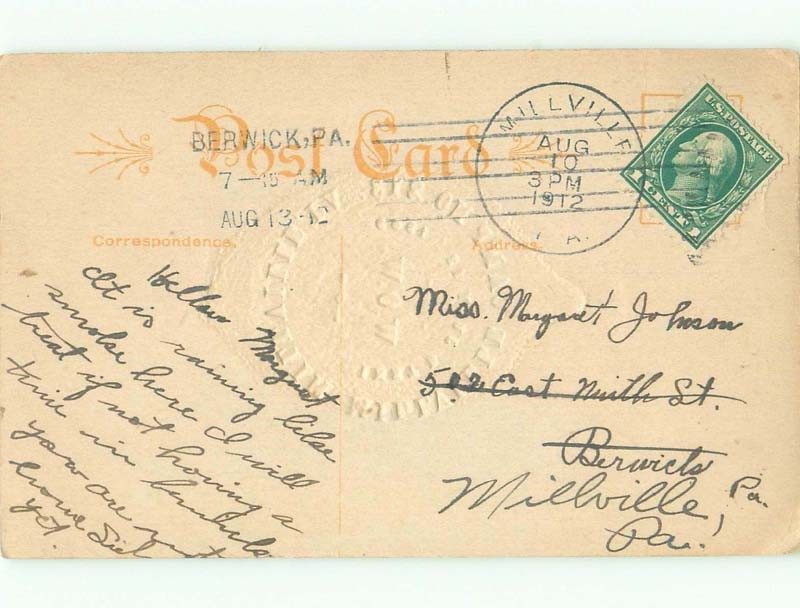 Post Card
BERWICK, PA.
7—45 AM
AUG 13 12
MILLVILLE
AUG
10
3PM
1912
PA.
U.S. POSTAGE
1 CENT 1
Correspondence.
Address.
Hellow Margaret
it is raining like
smoke here I will
treat if not having a
time in
you are not
home
yet.
Miss. Margaret Johnson
502 East Ninth St.
Berwick
Pa.
Millville,
Pa.